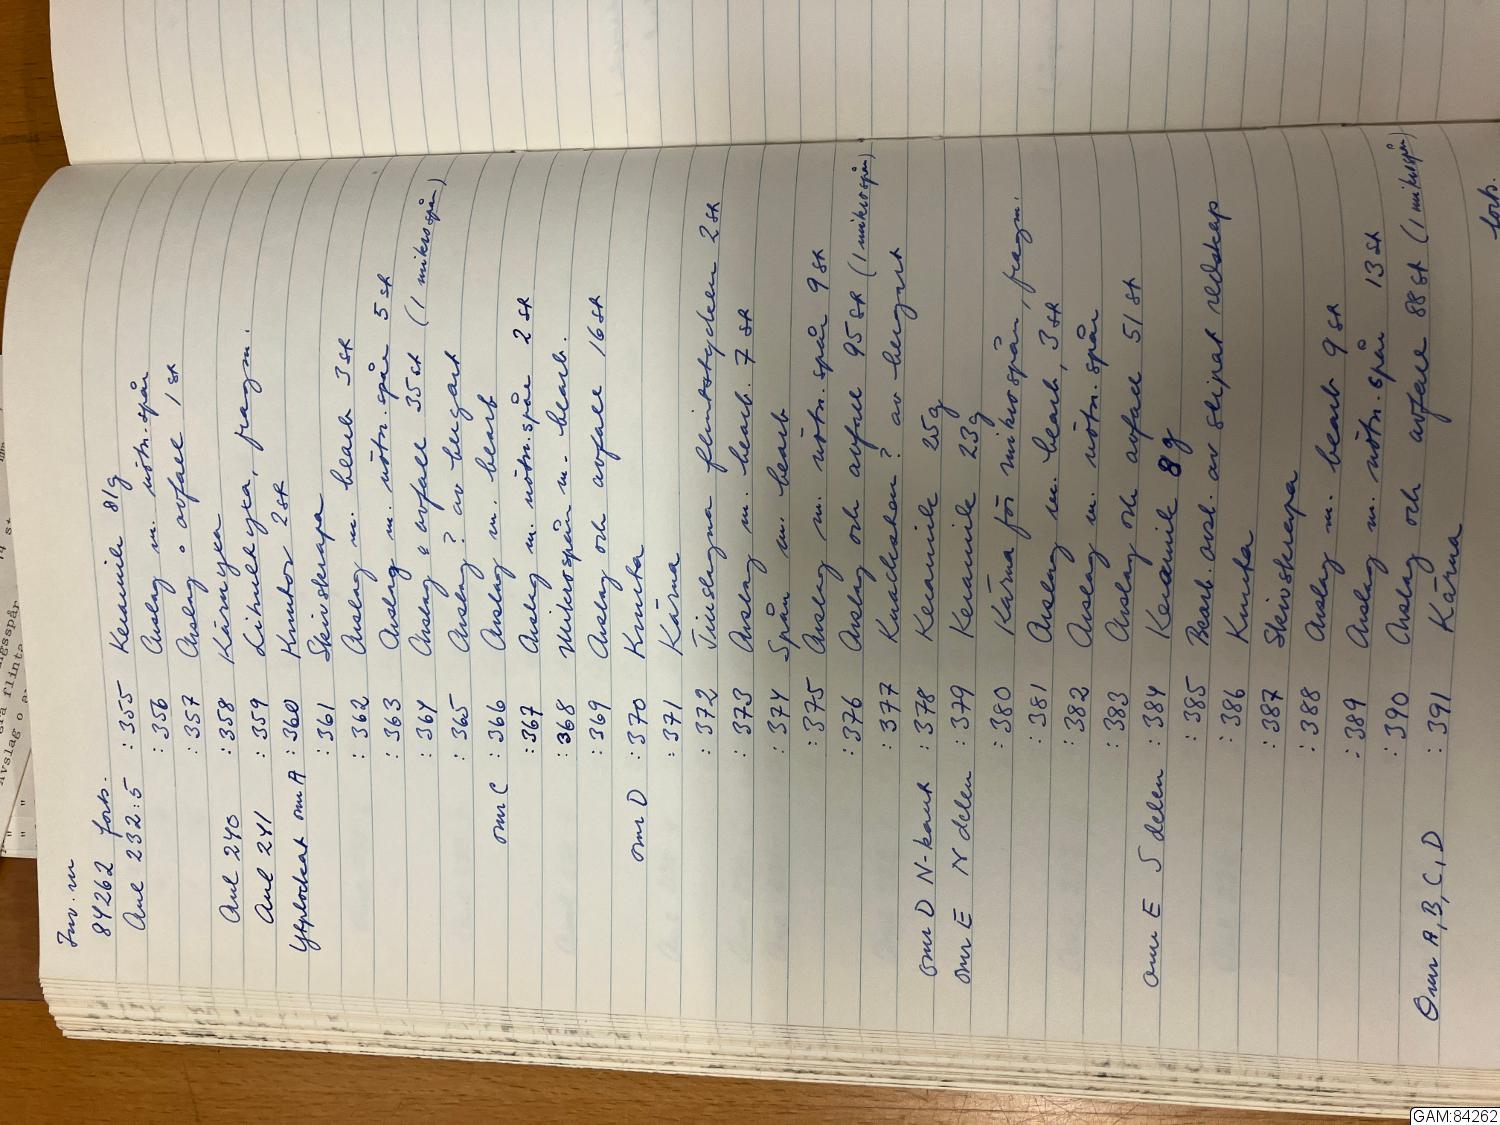 Inv. nr
84262 forts.
Anl 232:5 :355 Keramik 81g
:356 Avslag m. nötn.spår
:357 Avslag o avfall 1 st
Anl 240 :358 Kärnyxa
Anl 241 :359 Lihultyxa, fragm.
Upplockat omr A :360 Knutor 2 st
:361 Skivskrapa
:362 Avslag m. bearb 3 st
:363 Avslag m. nötn.spår 5 st
:364 Avslag o avfall 35 st (1 mikrospån)
:365 Avslag? av bergart
omr C :366 Avslag m. bearb
:367 Avslag m. nötn.spår 2 st
:368 Mikrospån m. bearb.
:369 Avslag och avfall 16 st
omr D :370 Knuta
:371 Kärna
:372 Tillslagna flintstycken 2 st
:373 Avslag m. bearb. 7 st
:374 Spån m. bearb
:375 Avslag m. nötn.spår 9 st
:376 Avslag och avfall 95 st (1 mikrospån)
:377 Knacksten? av bergart
omr D N-kant :378 Keramik 25g
omr E N delen :379 Keramik 23g
:380 Kärna för mikrospån, fragm.
:381 Avslag m. bearb, 3 st
:382 Avslag m. nötn.spår
:383 Avslag och avfall 51 st
omr E S delen :384 Keramik 8g
:385 Bearb. avsl. av slipat redskap
:386 Knuta
:387 Skivskrapa
:388 Avslag m. bearb 9 st
:389 Avslag m. nötn.spår 13 st
:390 Avslag och avfall 88 st (1 mikrospån)
Omr A, B, C, D :391 Kärna
forts.
Avslag o
GAM:84262